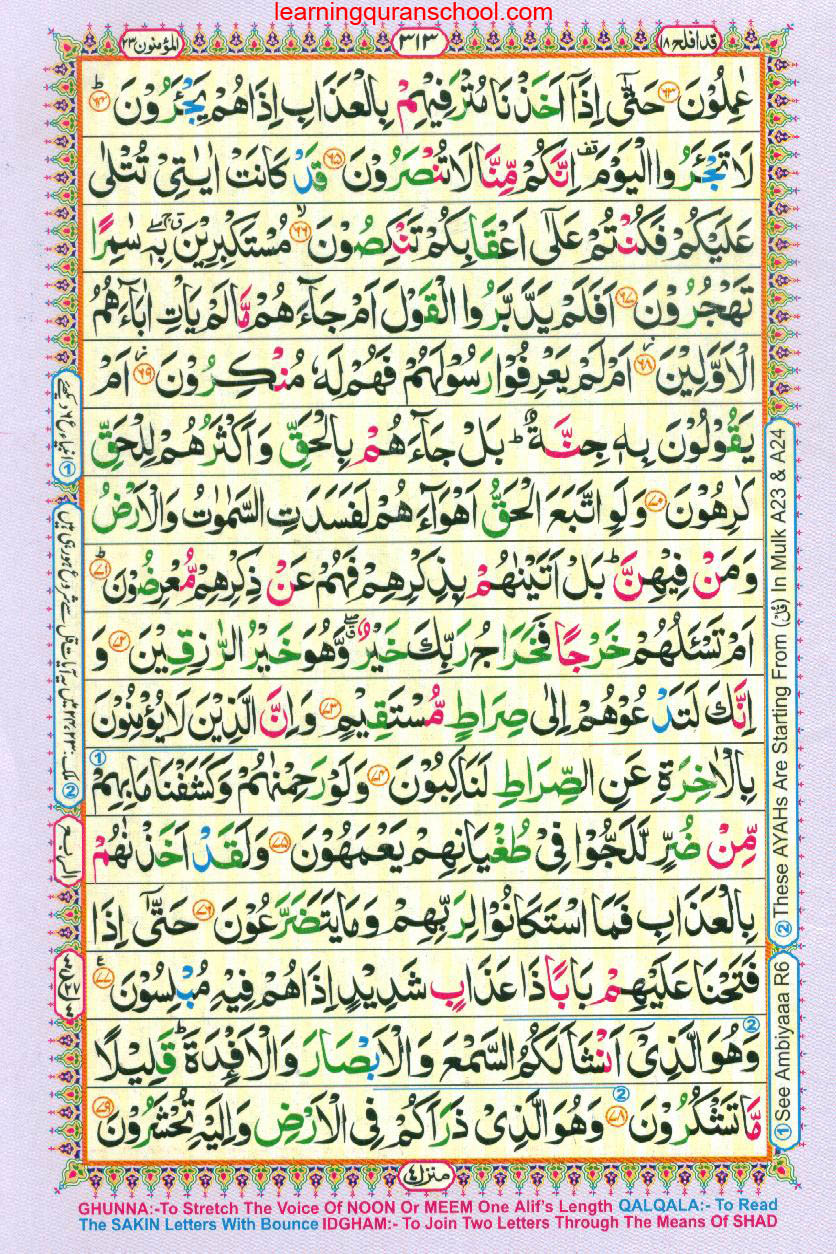 learningquranschool.com
المؤمنون ٢٣
٣١٣
قد افلح ١٨
عٰمِلُوْنَ ﴿٦٣﴾ حَتّٰۤى اِذَاۤ اَخَذْنَا مُتْرَفِيْهِمْ بِالْعَذَابِ اِذَا هُمْ يَجْـَٔرُوْنَ ؕ﴿٦٤﴾
لَا تَجْـَٔرُوا الْيَوْمَ ۟ اِنَّكُمْ مِّنَّا لَا تُنْصَرُوْنَ ﴿٦٥﴾ قَدْ كَانَتْ اٰيٰتِىْ تُتْلٰى
عَلَيْكُمْ فَكُنْتُمْ عَلٰۤى اَعْقَابِكُمْ تَنْكِصُوْنَ ۙ﴿٦٦﴾ مُسْتَكْبِرِيْنَ ۖ بِهٖ سٰمِرًا
تَهْجُرُوْنَ ﴿٦٧﴾ اَفَلَمْ يَدَّبَّرُوا الْقَوْلَ اَمْ جَآءَهُمْ مَّا لَمْ يَاْتِ اٰبَآءَهُمُ
الْاَوَّلِيْنَ ؗ﴿٦٨﴾ اَمْ لَمْ يَعْرِفُوْا رَسُوْلَهُمْ فَهُمْ لَهٗ مُنْكِرُوْنَ ؗ﴿٦٩﴾ اَمْ
يَقُوْلُوْنَ بِهٖ جِنَّةٌ ؕ بَلْ جَآءَهُمْ بِالْحَقِّ وَاَكْثَرُهُمْ لِلْحَقِّ
كٰرِهُوْنَ ﴿٧٠﴾ وَلَوِ اتَّبَعَ الْحَقُّ اَهْوَآءَهُمْ لَفَسَدَتِ السَّمٰوٰتُ وَالْاَرْضُ
وَمَنْ فِيْهِنَّ ؕ بَلْ اَتَيْنٰهُمْ بِذِكْرِهِمْ فَهُمْ عَنْ ذِكْرِهِمْ مُّعْرِضُوْنَ ؕ﴿٧١﴾
اَمْ تَسْـَٔلُهُمْ خَرْجًا فَخَرَاجُ رَبِّكَ خَيْرٌ ۖ وَّهُوَ خَيْرُ الرّٰزِقِيْنَ ﴿٧٢﴾ وَ
اِنَّكَ لَتَدْعُوْهُمْ اِلٰى صِرَاطٍ مُّسْتَقِيْمٍ ﴿٧٣﴾ وَاِنَّ الَّذِيْنَ لَا يُؤْمِنُوْنَ
بِالْاٰخِرَةِ عَنِ الصِّرَاطِ لَنٰكِبُوْنَ ﴿٧٤﴾ ① وَلَوْ رَحِمْنٰهُمْ وَكَشَفْنَا مَا بِهِمْ
مِّنْ ضُرٍّ لَّلَجُّوْا فِىْ طُغْيَانِهِمْ يَعْمَهُوْنَ ﴿٧٥﴾ وَلَقَدْ اَخَذْنٰهُمْ
بِالْعَذَابِ فَمَا اسْتَكَانُوْا لِرَبِّهِمْ وَمَا يَتَضَرَّعُوْنَ ﴿٧٦﴾ حَتّٰۤى اِذَا
فَتَحْنَا عَلَيْهِمْ بَابًا ذَا عَذَابٍ شَدِيْدٍ اِذَا هُمْ فِيْهِ مُبْلِسُوْنَ ﴿٧٧﴾ ع
② وَهُوَ الَّذِىْۤ اَنْشَاَ لَكُمُ السَّمْعَ وَالْاَبْصَارَ وَالْاَفْـِٕدَةَ ؕ قَلِيْلًا
مَّا تَشْكُرُوْنَ ﴿٧٨﴾ ② وَهُوَ الَّذِىْ ذَرَاَكُمْ فِى الْاَرْضِ وَاِلَيْهِ تُحْشَرُوْنَ ﴿٧٩﴾
منزل ٤
① See Ambiyaaa R6
② These AYAHs Are Starting From (قُلْ) In Mulk A23 & A24
①
②
GHUNNA:-To Stretch The Voice Of NOON Or MEEM One Alif's Length QALQALA:- To Read
The SAKIN Letters With Bounce IDGHAM:- To Join Two Letters Through The Means Of SHAD